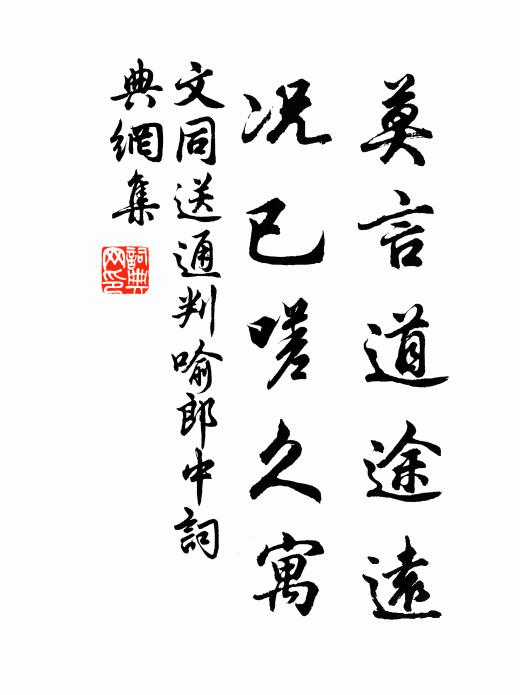 莫言道途遠
况已嗟久寓
文同送通判喻郎中詞
典網集
詞典
网印